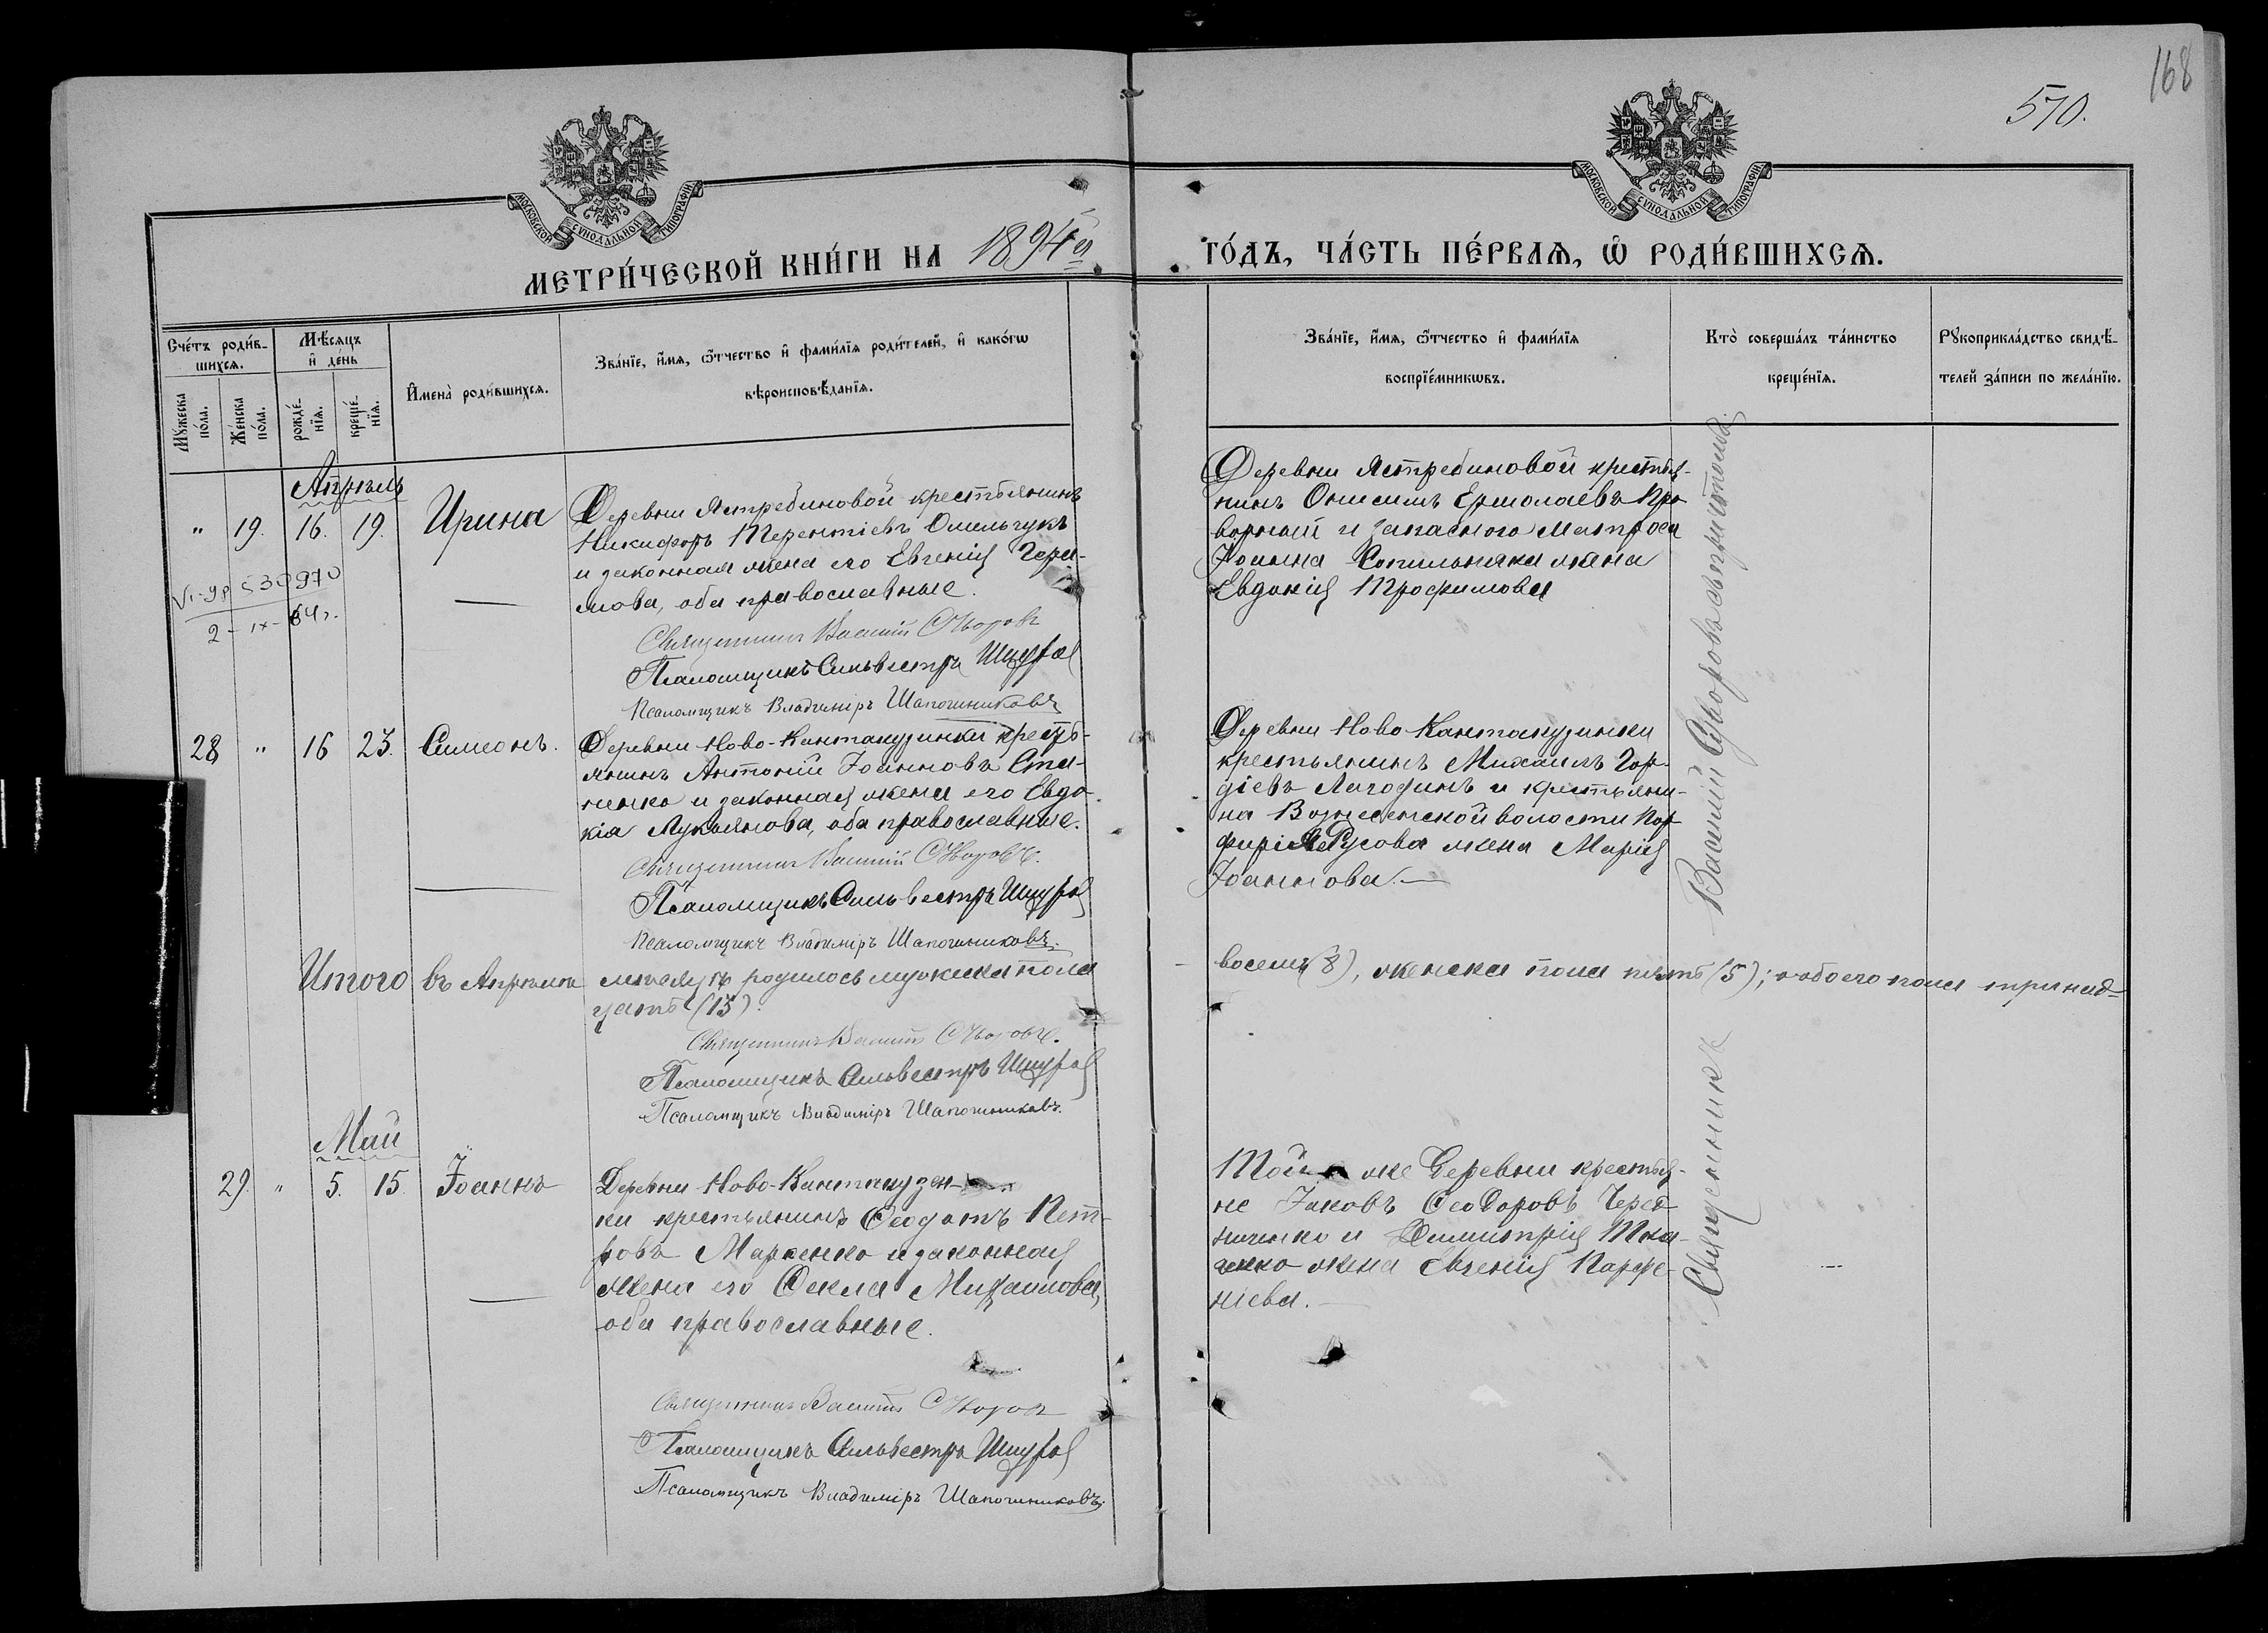 168
570.
МОСКОВСКОЙ СѴНОДАЛЬНОЙ ТИПОГРАФІИ
МОСКОВСКОЙ СѴНОДАЛЬНОЙ ТИПОГРАФІИ
МЕТРИ́ЧЕСКОЙ КНИ́ГИ НА 1894й
ГО́ДЪ, ЧА́СТЬ ПЕ́РВАѦ, Ѡ҆ РОДИ́ВШИХСѦ.
Сче́тъ роди́в-
шихсѧ.
Мѣ́сѧцъ
и҆ де́нь
Мꙋ́жеска
по́ла.
Же́нска
по́ла.
рожде́-
нїѧ.
креще́-
нїѧ.
И҆мена̀ роди́вшихсѧ.
Зва́нїе, и҆́мѧ, ѻ҆́тчество и҆ фами́лїѧ роди́телей, и҆ како́гѡ
вѣроисповѣ́данїѧ.
Зва́нїе, и҆́мѧ, ѻ҆́тчество и҆ фами́лїѧ
воспрїе́мникѡвъ.
Кто̀ соверша́лъ та́инство
креще́нїѧ.
Рꙋкоприкла́дство свидѣ́-
телей за́писи по жела́нїю.
Апрѣль
" 19. 16. 19. Ирина
Деревни Ястребиновой крестьянинъ
Никифоръ Терентіевъ Омельчукъ
и законная жена его Евгенія Гера-
мова, оба православные.
530970
2-IX-54г.
Священникъ Василій Суворовъ
Псаломщикъ Сильвестръ
Псаломщикъ Владиміръ Шапошниковъ
Деревни Ястребиновой крестья-
нинъ Онисимъ Ермолаевъ Про-
ворный и запасного матроса
Іоанна Сопильняка жена
Евдокія Трофимова
28 " 16 23. Симеонъ.
Деревни Ново-Кантакузинки кресть-
янинъ Антоній Іоанновъ Ста-
ненко и законная жена его Евдо-
кія Лукьянова, оба православные.
Священникъ Василій Суворовъ.
Псаломщикъ Сильвестръ
Псаломщикъ Владиміръ Шапошниковъ.
Деревни Ново Кантакузинки
крестьянинъ Михаилъ Гор-
діевъ Лагодинъ и крестьяни-
на Вознесенской волости Пор-
фирія Русова жена Марія
Іоаннова.
Итого въ Апрѣлѣ мѣсяцѣ родилось мужеска пола
восемь (8), женска пола пять (5); обоего пола тринад-
цать (13).
Священникъ Василій Суворовъ.
Псаломщикъ Сильвестръ
Псаломщикъ Владиміръ Шапошниковъ.
Май
29. " 5. 15. Іоаннъ
Деревни Ново-Кантакузен-
ки крестьянинъ Ѳеодотъ Пет-
ровъ Марженко и законная
жена его Ѳекла Михаилова,
оба православные.
Священникъ Василій Суворовъ
Псаломщикъ Сильвестръ
Псаломщикъ Владиміръ Шапошниковъ.
Той же деревни крестья-
не Іаковъ Ѳеодоровъ Черед-
ниченко и Димитрія Тка-
ченко жена Евгенія Парфе-
ніева.
Священникъ Василій Суворовъ съ причтомъ.